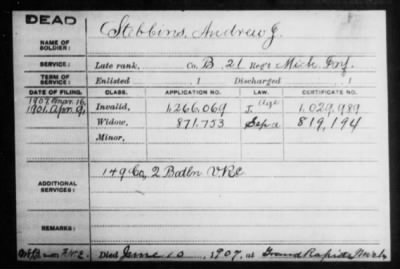 DEAD
NAME OF SOLDIER: Stebbins, Andrew J.
SERVICE: Late rank, Co. B 21 Reg't Mich. Inf.
TERM OF SERVICE: Enlisted , 1 Discharged , 1
DATE OF FILING. CLASS. APPLICATION NO. LAW. CERTIFICATE NO.
1907, Mar. 16, Invalid, 1,266,069 Age 1,029,989
1901, Apr. 9, Widow, 871.753 819,194
Minor,
ADDITIONAL SERVICES: 149 Co, 2 Batln V R C
REMARKS:
Died June 10, 1907, at Grand Rapids Mich